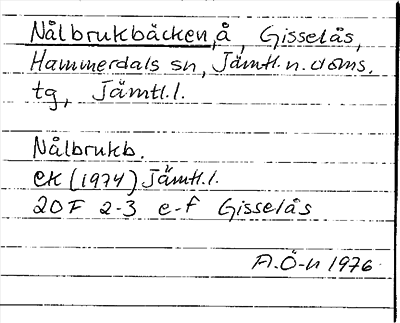 Nålbrukbäcken, å, Gisselås,
Hammerdals sn, Jämtl.n. doms.
tg, Jämtl.l.
Nålbrukb.
ek (1974) Jämtl.l.
20F 2-3 e-f Gisselås
A.Ö-n 1976